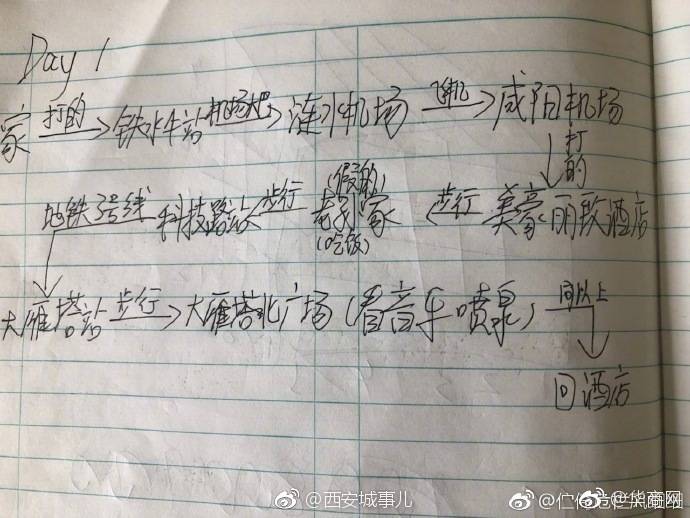 Day 1
家 打的 铁水牛站 机场大巴 涟水机场 飞机 咸阳机场
打的
(假的)
地铁3号线 科技路站 步行 老孙家 步行 美豪丽致酒店
(吃饭)
大雁塔站 步行 大雁塔北广场(看音乐喷泉) 同以上
回酒店
@西安城事儿
@华商网